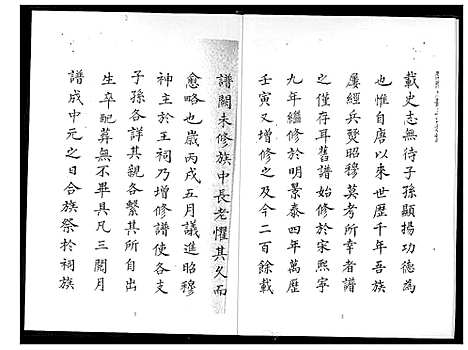 載史志無待子孫顯揚功德為
也惟自唐以來世歷千年吾族
屢經兵燹昭穆莫考所幸者譜
之僅存耳舊譜始修於宋熙寧
九年繼修於明景泰四年萬歷
壬寅又增修之及今二百餘載
譜闕未修族中長老懼其久而
愈略也歲丙戌五月議進昭穆
神主於王祠乃增修譜使各支
子孫各詳其親各繫其所自出
生卒配葬無不畢具凡三閱月
譜成中元之日合族祭於祠族